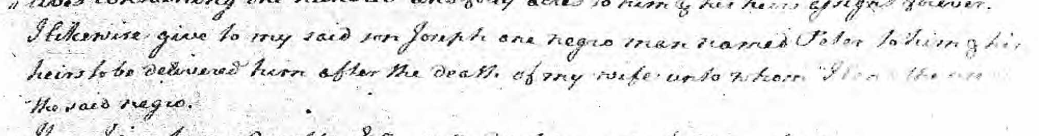 one hundred and fifty acres to him & his heirs assigns forever.
I likewise give to my said son Joseph one negro man named Peter to him & his
heirs to be delivered him after the death of my wife unto whom I lend the use
the said negro.